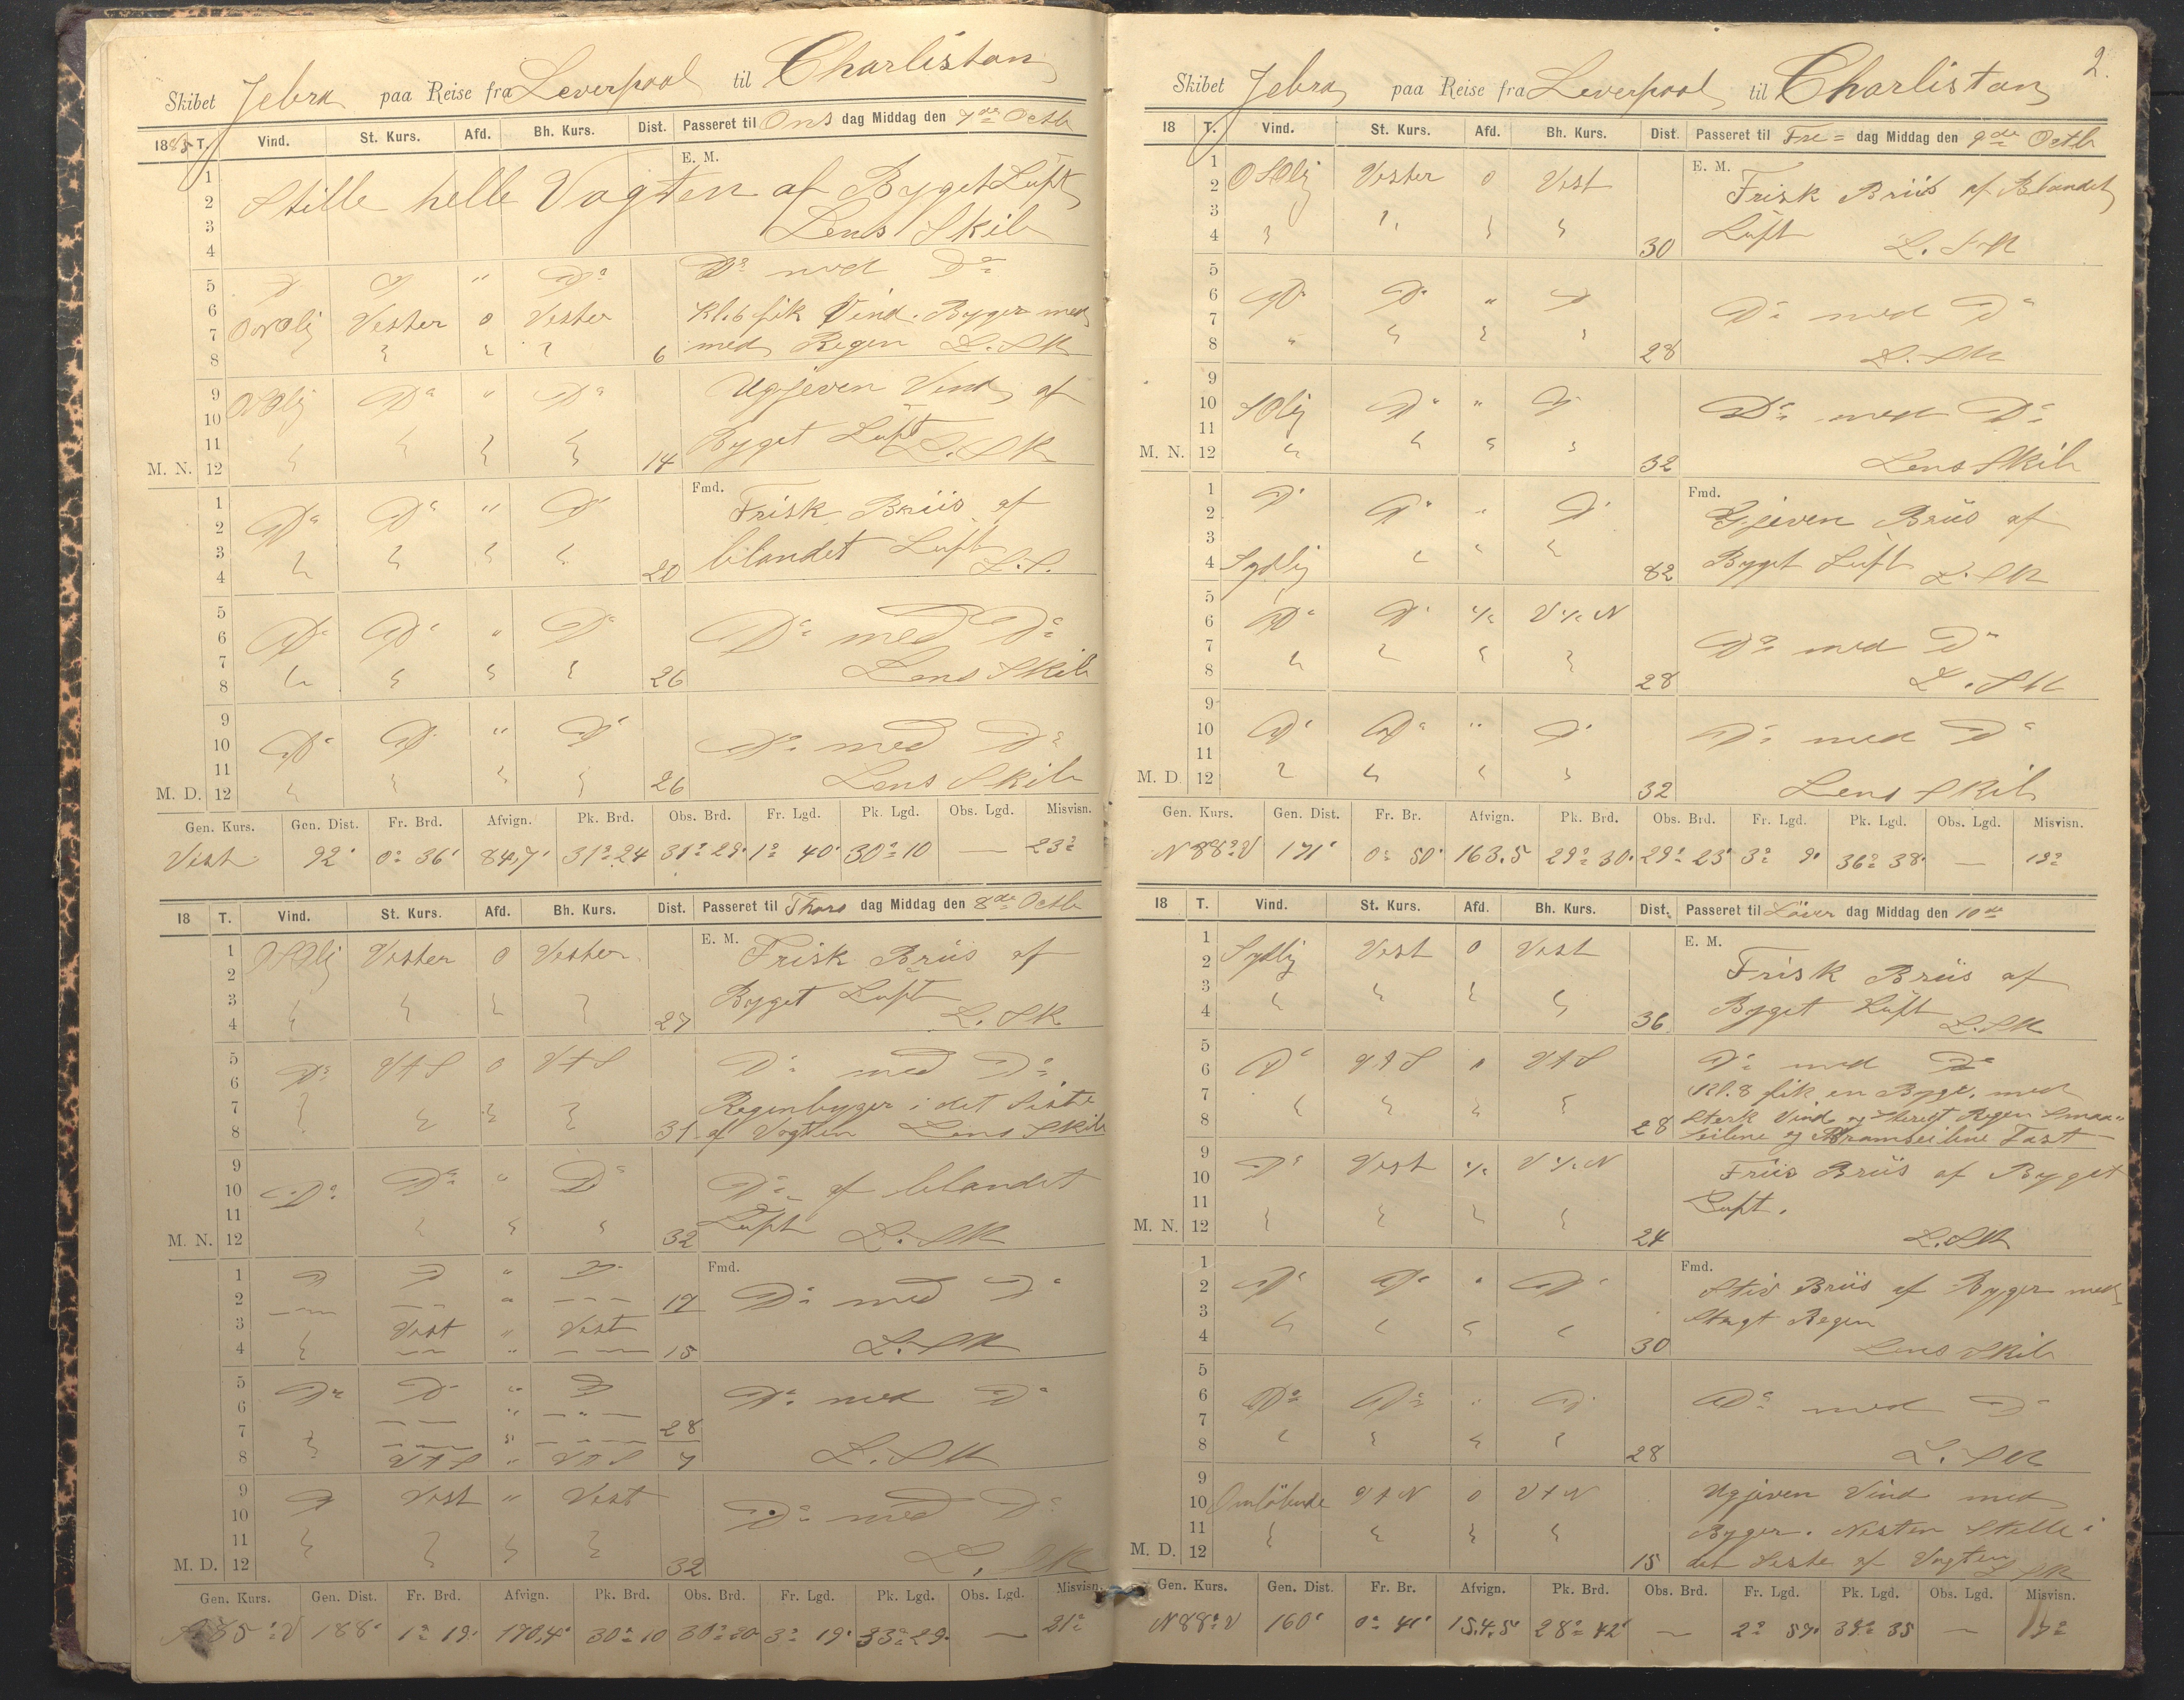 Skibet Jebra paa Reise fra Leverpool til Charlistan
1885 T. Vind. St. Kurs. Afd. Bh. Kurs. Dist. Passeret til Ons dag Middag den 7de Octb
E. M.
1 2 3 4 Stille hele Vagten af Byget Luft
Lens Skib
5 D D " Do Do med Do
6 ONOlig Vester 0 Vester Kl. 6 fik Vind. Byger med
7 8 6 med Regen L. SK
9 10 NOlig Do " Do Ugjeven Vind af
11 M. N. 12 14 Byget Luft L. SK
Fmd.
1 2 Do Do " D Frisk Briis af
3 4 20 blandet Luft L. S.
5 6 Do Do " Do Do med Do
7 8 26 Lens Skib
9 10 Do D " D Do med Do
11 M. D. 12 26 Lens Skib
Gen. Kurs. Gen. Dist. Fr. Brd. Afvign. Pk. Brd. Obs. Brd. Fr. Lgd. Pk. Lgd. Obs. Lgd. Misvisn.
Vest 92' 0° 36' 84,7' 31° 24 31° 29' 1° 40' 30° 10 — 23°
18 T. Vind. St. Kurs. Afd. Bh. Kurs. Dist. Passeret til Thors dag Middag den 8de Octb
E. M.
1 2 OSOlig Vester 0 Vester Frisk Briis af
3 4 27 Byget Luft L. SK
5 6 Do V t S 0 V t S Do med Do
7 Regenbyger i det Siste
8 31 af Vagten Lens Skib
9 10 Do Do " Do Do af blandet
11 M. N. 12 32 Luft L. SK
Fmd.
1 D D " D
2 — — " — 17 Do med Do
3 Vest " Vest
4 — " — 15 L. SK
5 Do D " D
6 — " — 28 Do med Do
7 — " —
8 V t S " V t S 7 L. SK
9 10 D Vest " Vest Do med Do
11 M. D. 12 32 L. SK
Gen. Kurs. Gen. Dist. Fr. Brd. Afvign. Pk. Brd. Obs. Brd. Fr. Lgd. Pk. Lgd. Obs. Lgd. Misvisn.
85° V 188' 1° 19' 170,4' 30° 10 30° 20 3° 19' 33° 29' — 21°
2.
Skibet Jebra paa Reise fra Leverpool til Charlistan
18 T. Vind. St. Kurs. Afd. Bh. Kurs. Dist. Passeret til Fre= dag Middag den 9de Octb
E. M.
1 2 OSOlig Vester 0 Vest Frisk Briis af Blandet
3 4 30 Luft L. SK
5 6 Do D " D Do med Do
7 8 28 L. SK
9 10 SOlig D " D Do med Do
11 M. N. 12 32 Lens Skib
Fmd.
1 2 D D " D Gjeven Briis af
3 4 Sydlig 82 Byget Luft L. SK
5 6 Do D ½ V ½ N Do med Do
7 8 28 L. SK
9 10 D Do " D Do med Do
11 M. D 12 32 Lens Skib
Gen. Kurs. Gen. Dist. Fr. Br. Afvign. Pk. Brd. Obs. Brd. Fr. Lgd. Pk. Lgd. Obs. Lgd. Misvisn.
N 88° V 171' 0° 50' 163.5 29° 30' 29° 23' 3° 9' 36° 38' — 19°
18 T. Vind. St. Kurs. Afd. Bh. Kurs. Dist. Passeret til Löver dag Middag den 10de
E. M.
1 2 Sydlig Vest 0 Vest Frisk Briis af
3 4 36 Byget Luft L. SK
5 6 D V t S 0 V t S Do med Do
7 Kl. 8 fik en Byge, med
8 28 Sterk Vind og Regen Smaa=
seilene og Bramseilene Fast
9 10 D Vest ½ V ½ N Friis Briis af Byget
11 Luft.
M. N. 12 24 L. SK
Fmd.
1 2 D D " D Stiv Briis af Byger med
3 Regen
4 30 Lens Skib
5 6 Do Do " D Do med Do
7 8 28 L. SK
9 10 Omlöbende V t N 0 V t N Ugjeven Vind med
11 Byger. Nesten Stelle i
M. D. 12 15 det Siste af Vagten L SK
Gen. Kurs. Gen. Dist. Fr. Br. Afvign. Pk. Brd. Obs. Brd. Fr. Lgd. Pk. Lgd. Obs. Lgd. Misvisn.
N 88° V 160' 0° 41' 154.5' 28° 42' — 2° 57' 39° 35 — 17°